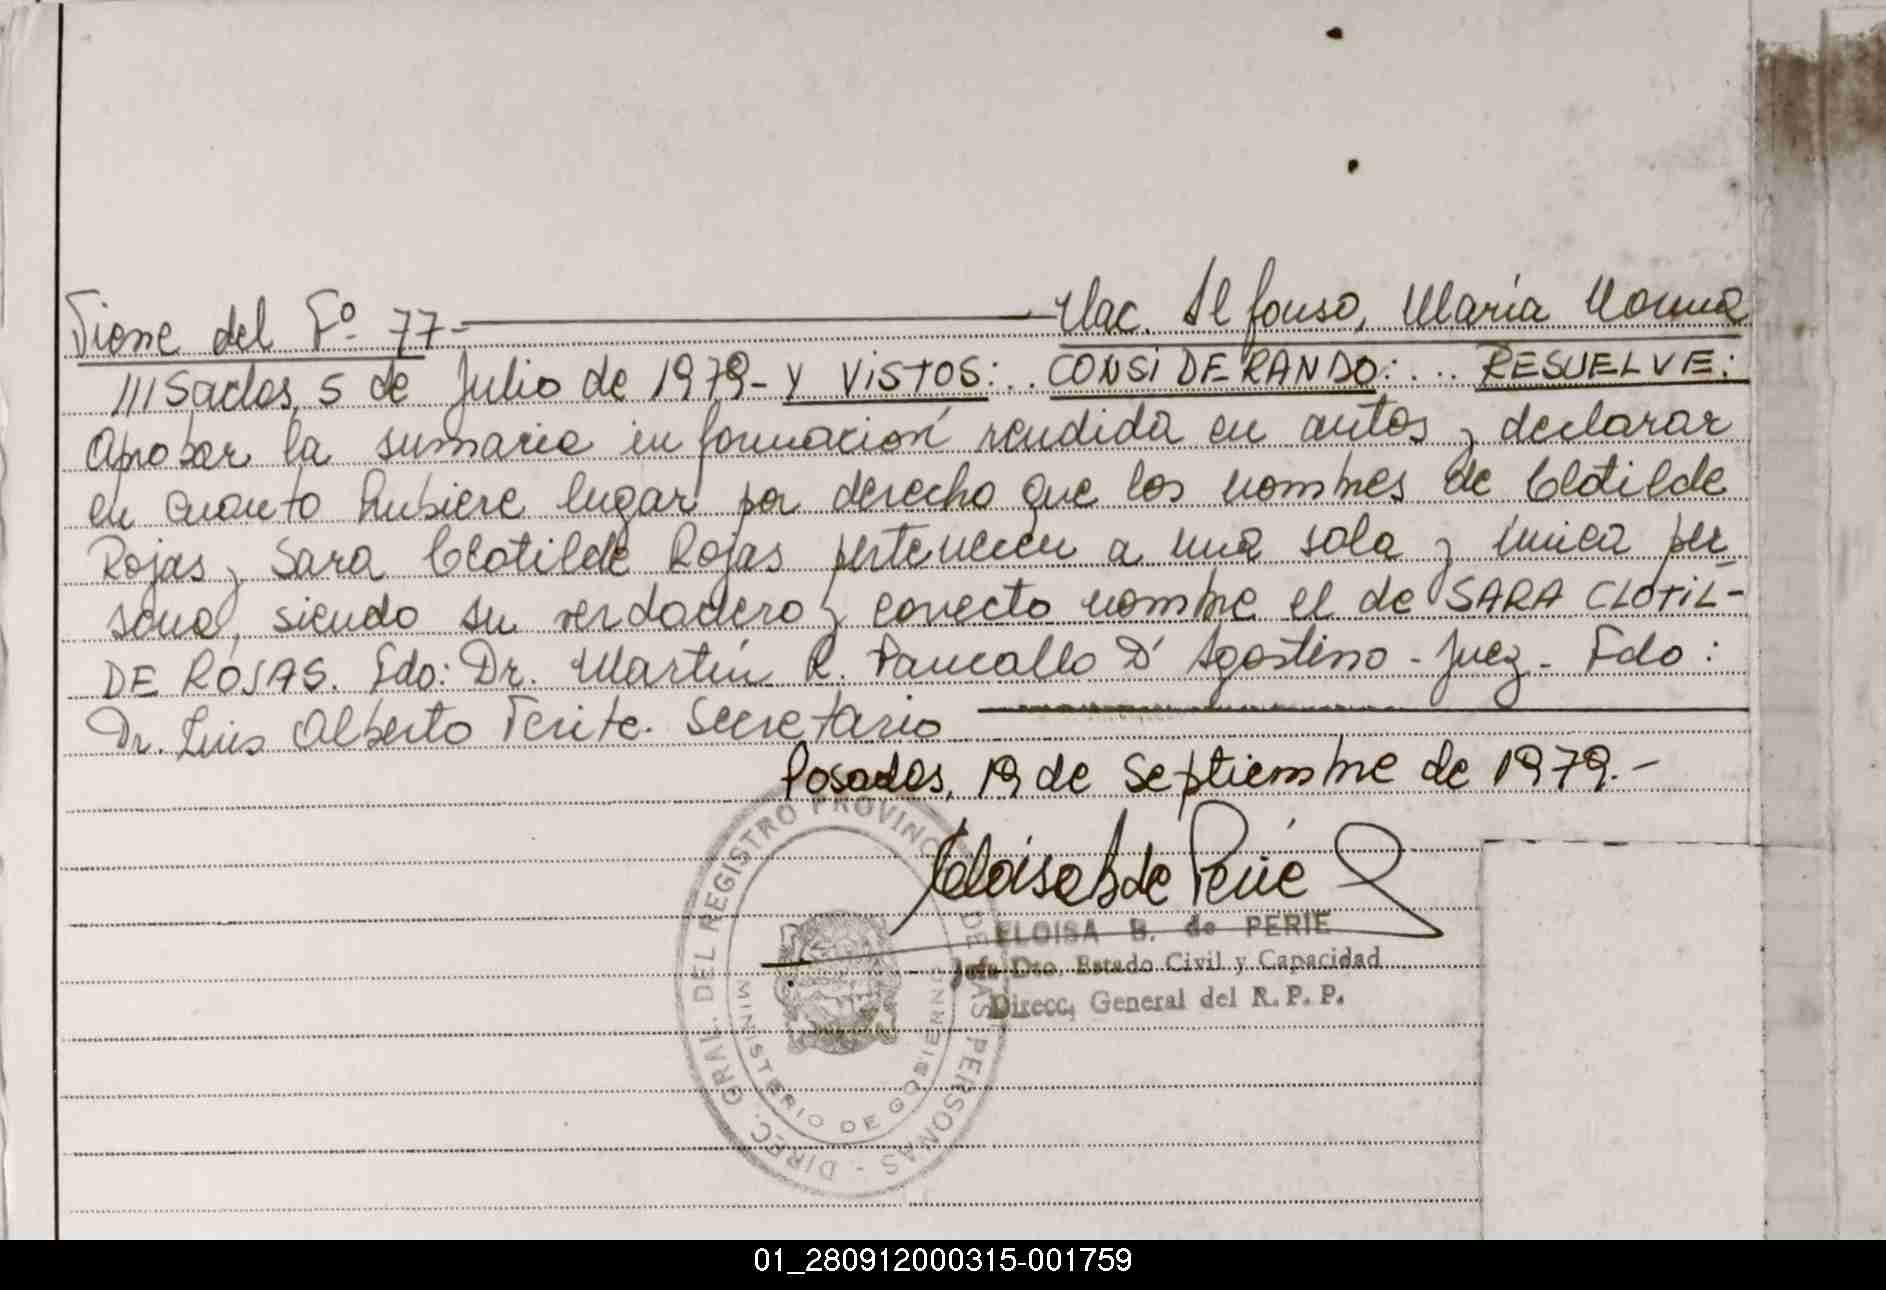 Viene del Fº 77- Nac. Alfonso, María Norma
///Sadas, 5 de Julio de 1979- Y VISTOS:.. CONSIDERANDO:... RESUELVE:
Aprobar la sumaria información rendida en autos y declarar
en cuanto hubiere lugar por derecho que los nombres de Clotilde
Rojas y Sara Clotilde Rojas pertenecen a una sola y única per
sona, siendo su verdadero y correcto nombre el de SARA CLOTIL-
DE ROJAS. Fdo: Dr. Martín R. D' Agostino - Juez - Fdo:
Dr. Luis Alberto Secretario
Posadas, 19 de Septiembre de 1979.-
Eloisa B de Perié
ELOISA B. de PERIE
Jefe Dto. Estado Civil y Capacidad
Direcc, General del R. P. P.
DIREC. GRAL. DEL REGISTRO PROVINC DE LAS PERSONAS -
MINISTERIO DE GOBIERNO
01_280912000315-001759